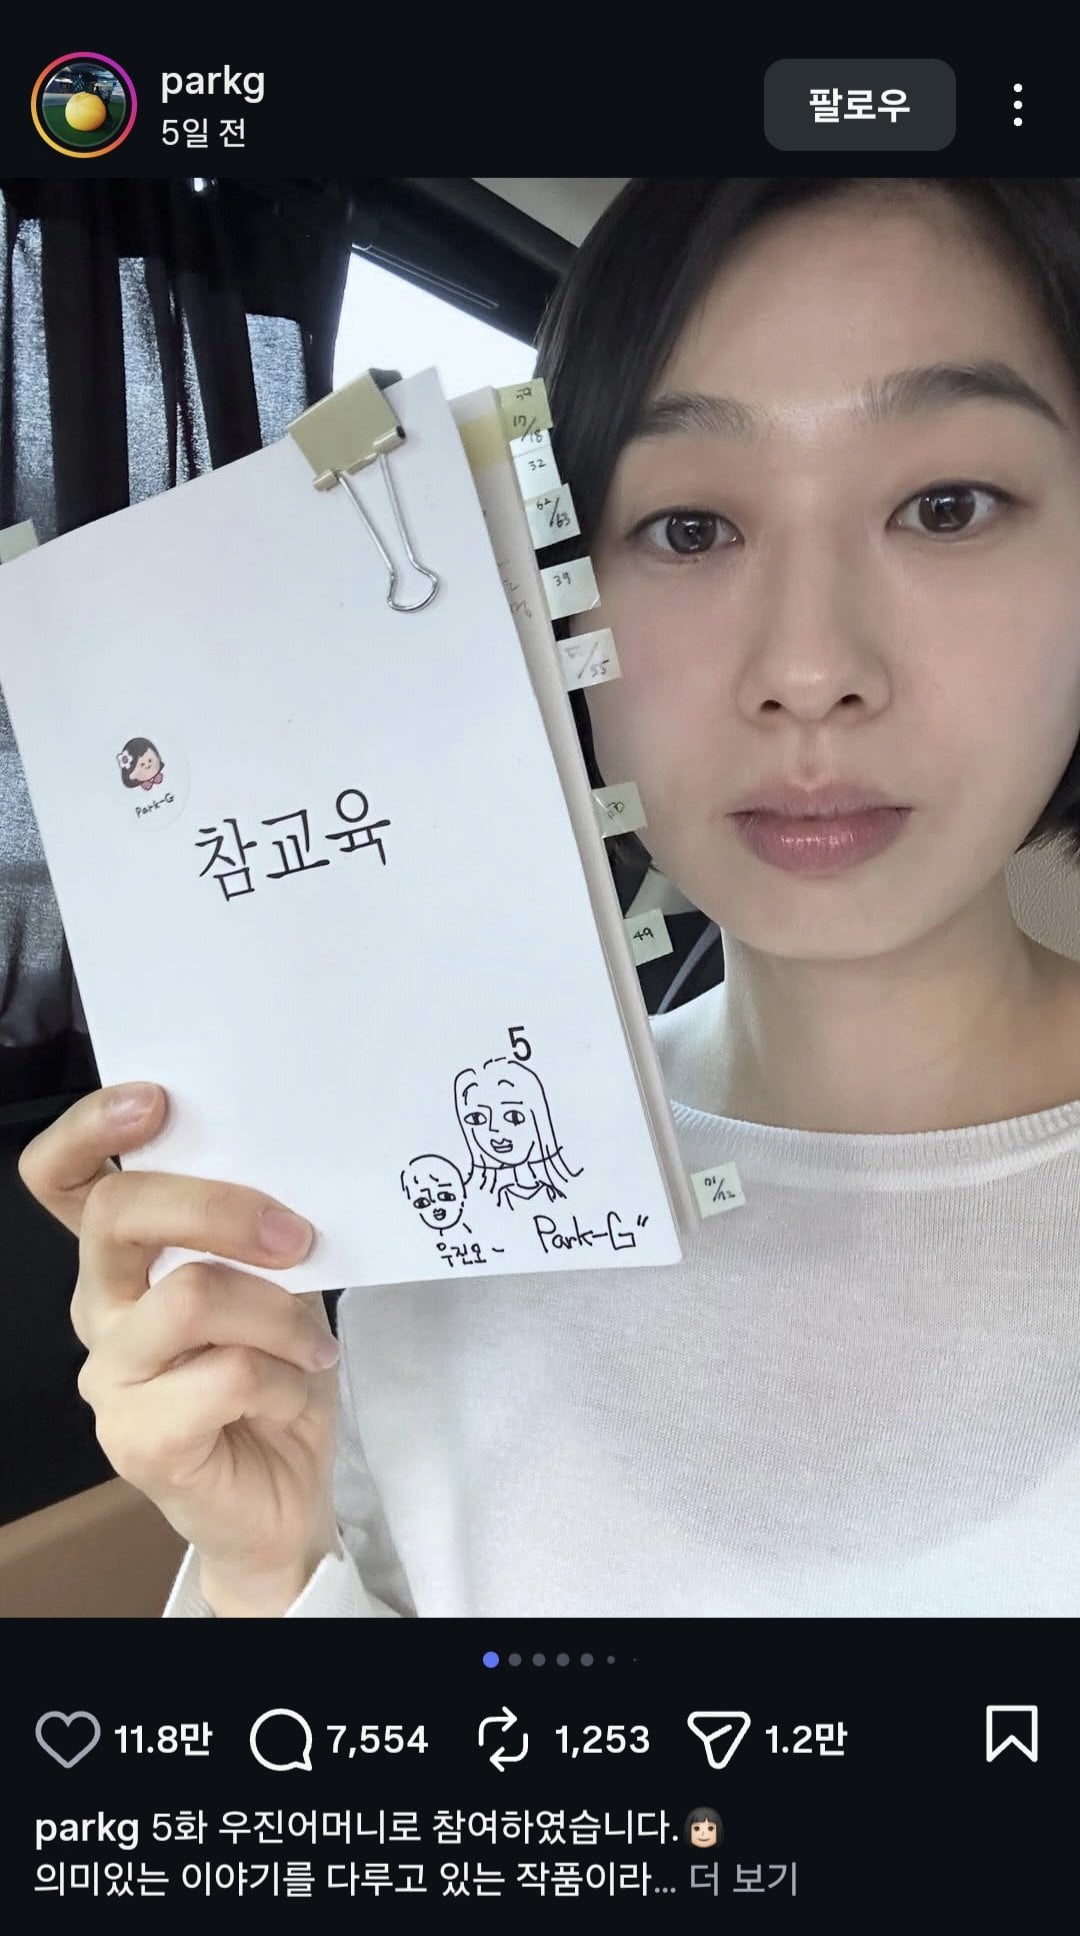 parkg
5일 전
팔로우
59
17/18
32
62/63
39
/55
49
71/72
Park-G
참교육
5
우진모~
Park-G"
11.8만
7,554
1,253
1.2만
parkg 5화 우진어머니로 참여하였습니다.👩🏻
의미있는 이야기를 다루고 있는 작품이라... 더 보기